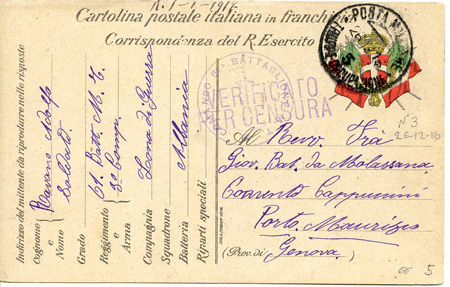 R. 1-1-1917
Cartolina postale italiana in franchi
Corrispondenza del R. Esercito
POSTA MIL
BATTAGLIONE
VERIFICATO
PER CENSURA
N° 3
26-12-16
Al Rev. Frà
Giov. Bat. da Molassana
Convento Cappuccini
Porto Maurizio
(Prov. di Genova)
5
Indirizzo del mittente da riprodurre nello risposte
Cognome e Nome Ravano Adolfo
Grado Soldato
Reggimento e Arma 61. Batt. M. T.
Compagnia 3a Comp.
Squadrone Zona di Guerra
Batteria Albania
Riparti speciali